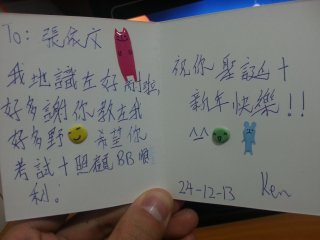 To: 張文
我地識左好耐啦,
好多謝你教左我
好多野 希望你
考試+照顧BB順
利!
祝你聖誕+
新年快樂!!
^^
24-12-13 Ken